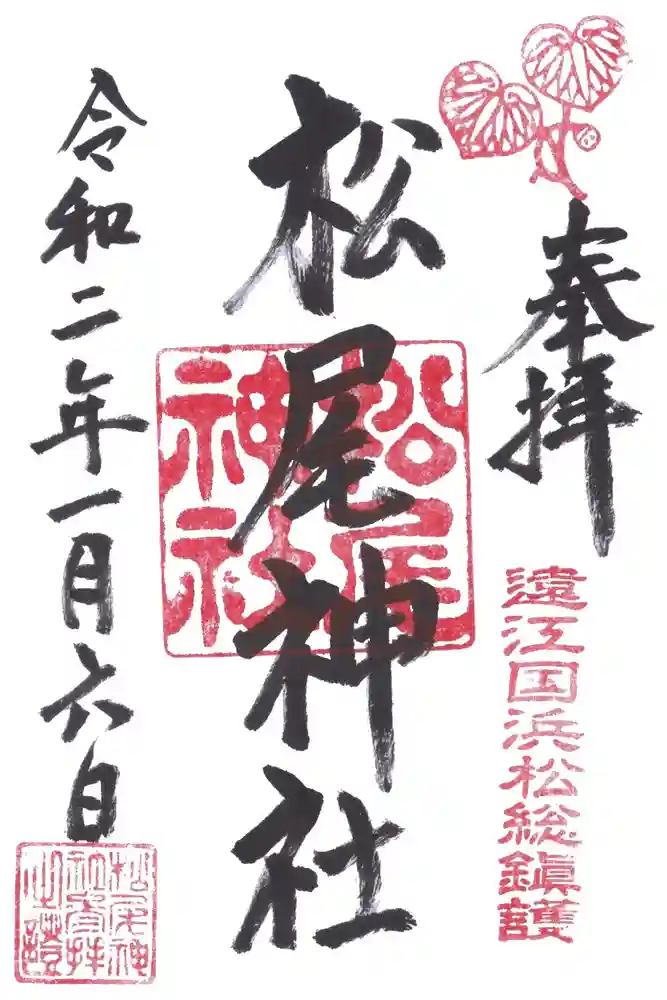 奉拝
遠江国浜松総鎮護
松尾神社
松尾神社
令和二年一月六日
松尾神
社参拝
之證